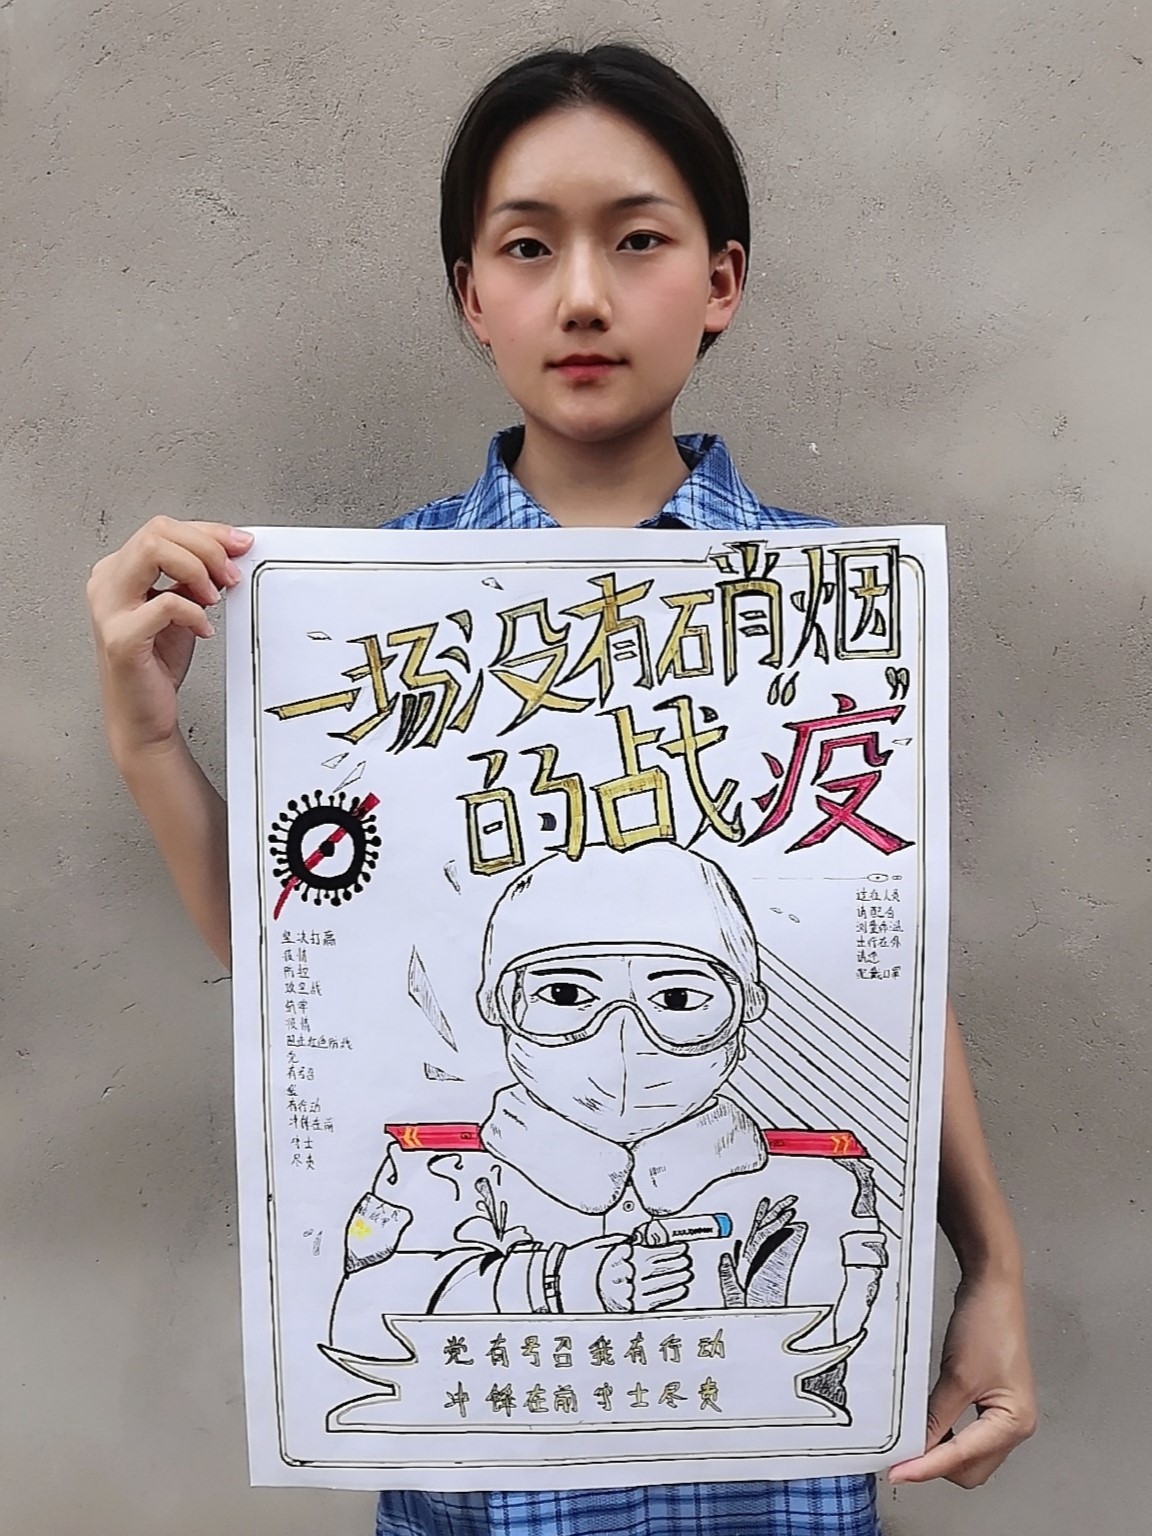 一场没有硝烟
的战“疫”
坚决打赢
疫情
防控
攻坚战
筑牢
疫情
防线
党
有号召
我
有行动
冲锋在前
守土
尽责
过往人员
请配合
测量体温
出行在外
请您
配戴口罩
党有号召我有行动
冲锋在前守土尽责